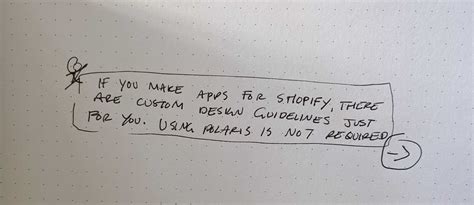 IF YOU MAKE APPS FOR SHOPIFY, THERE
ARE CUSTOM DESIGN GUIDELINES JUST
FOR YOU. USING POLARIS IS NOT REQUIRED